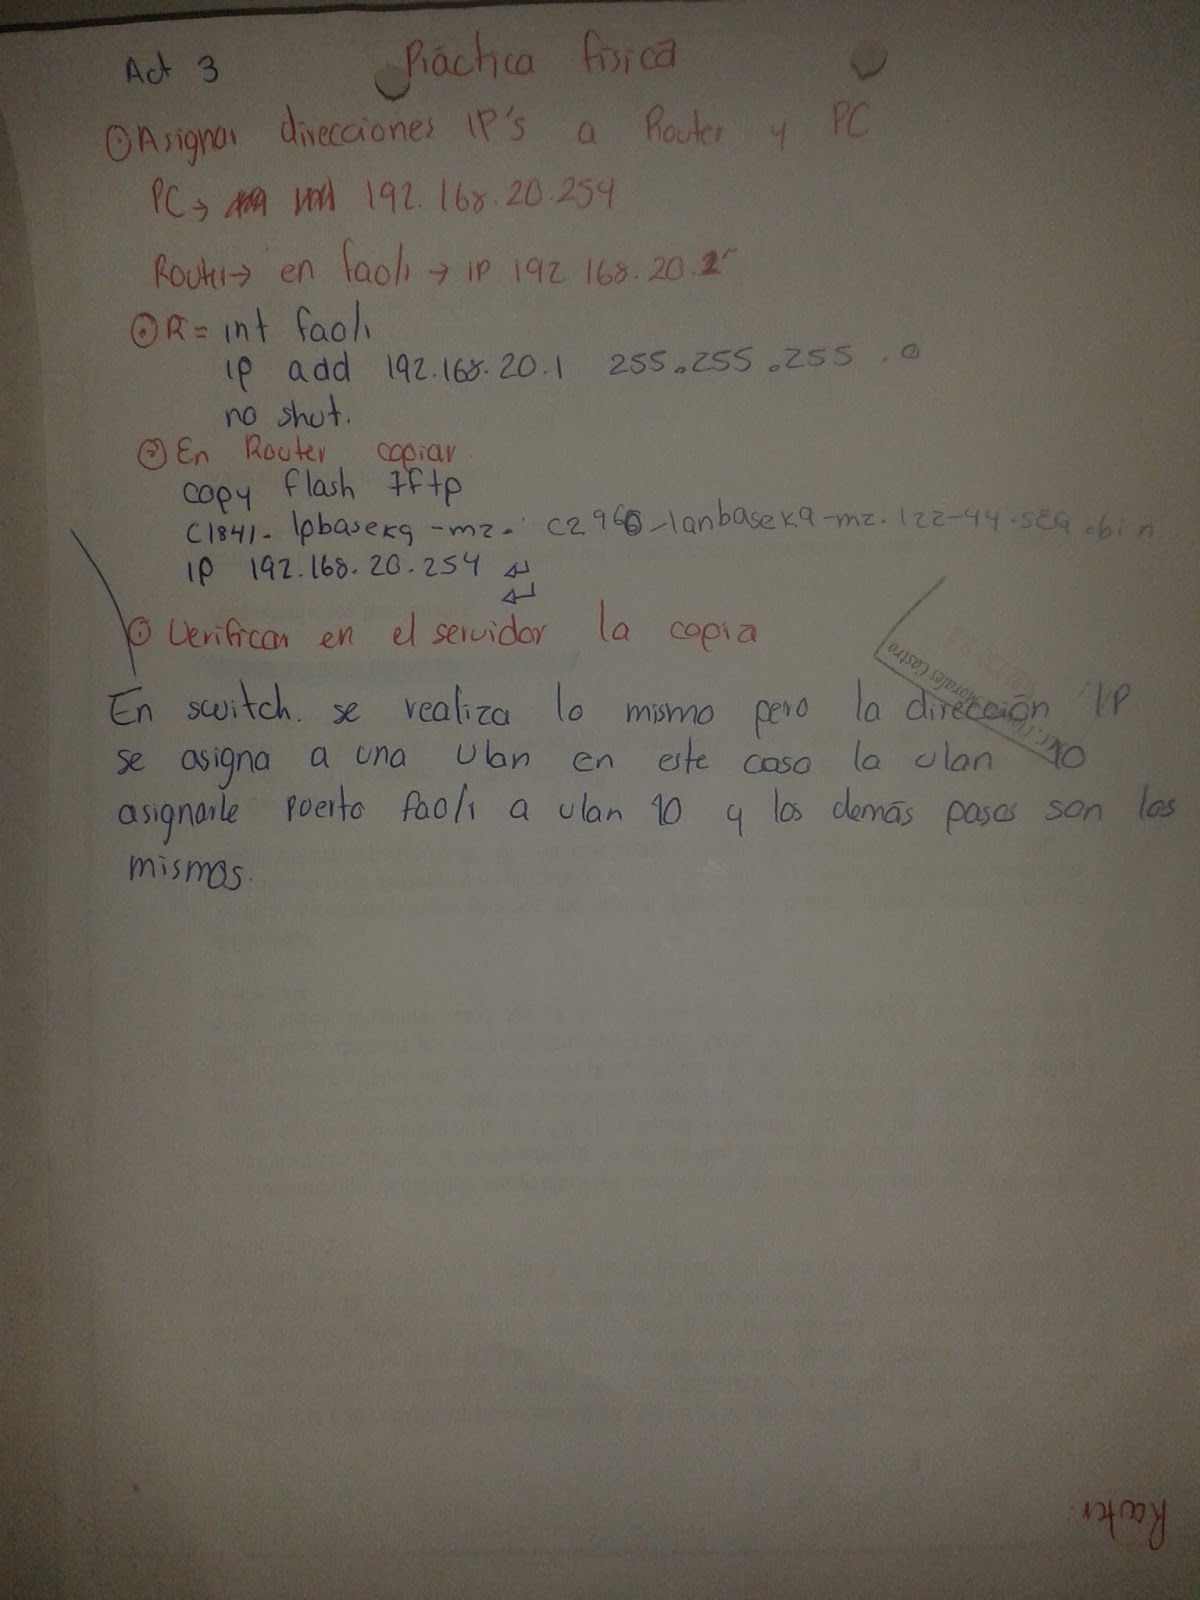 Act 3 Práctica física
Asignar direcciones IP's a Router y PC
PC→ 192.168.20.254
Router→ en fa0/1 → IP 192 168.20.
R= int fa0/1
ip add 192.168.20.1 255.255.255.0
no shut.
En Router copiar
copy flash tftp
C1841- ipbasek9-mz. c2960-lanbasek9-mz.122-44.SE9.bin
IP 192.168.20.254 ↵
↵
Verificar en el servidor la copia
En switch. se realiza lo mismo pero la dirección IP
se asigna a una vlan en este caso la vlan 10
asignarle puerto fa0/1 a vlan 10 y los demás pasos son los
mismos.
Morales Castro
Router